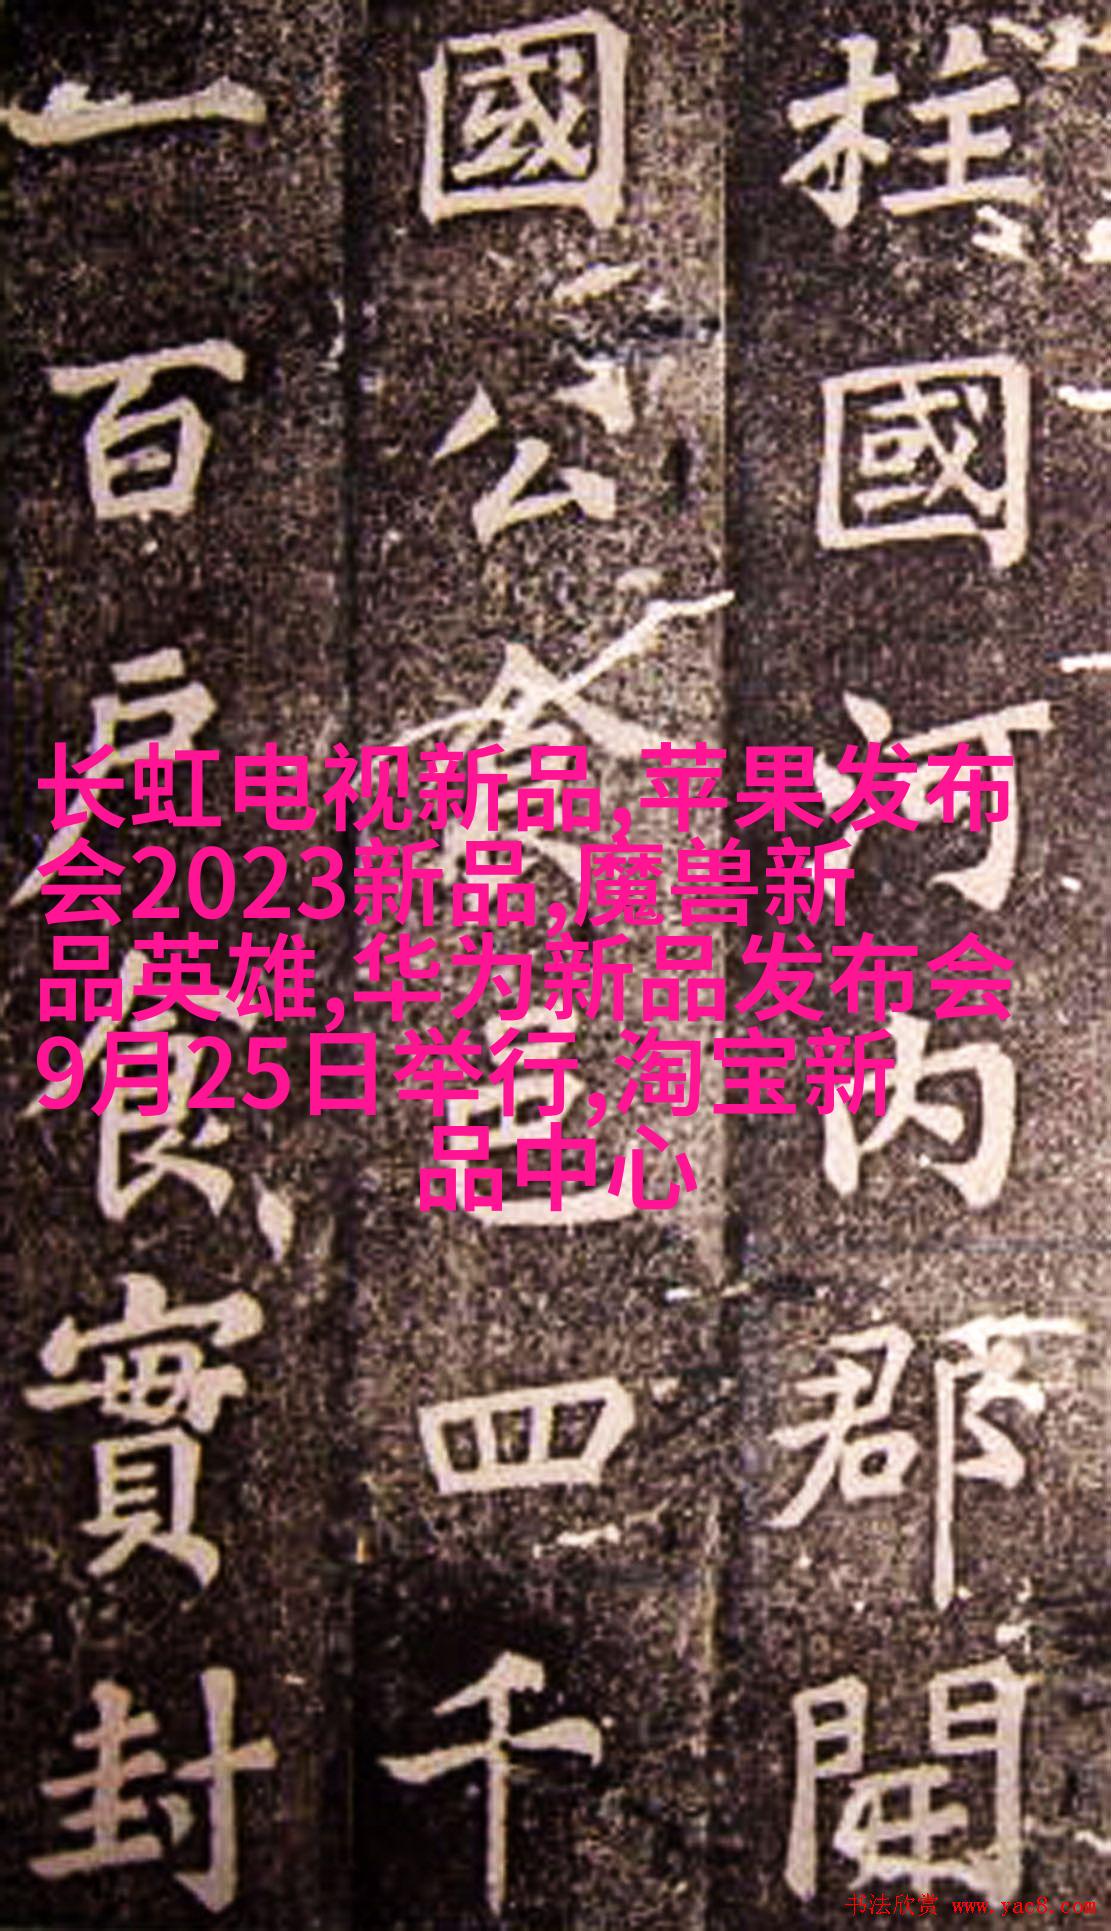 柱國河內郡開
國公食邑四千
一百戶食實封
长虹电视新品,苹果发布
会2023新品,魔兽新
品英雄,华为新品发布会
9月25日举行,淘宝新
品中心
书法欣赏 www.yac8.com